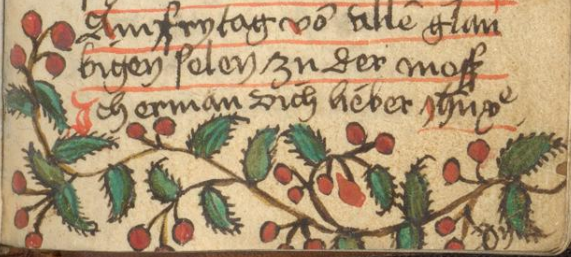 Am frytag võ allẽ glau
bigen selen zu der moß
Ich erman dich lieber ihũ xp̃e